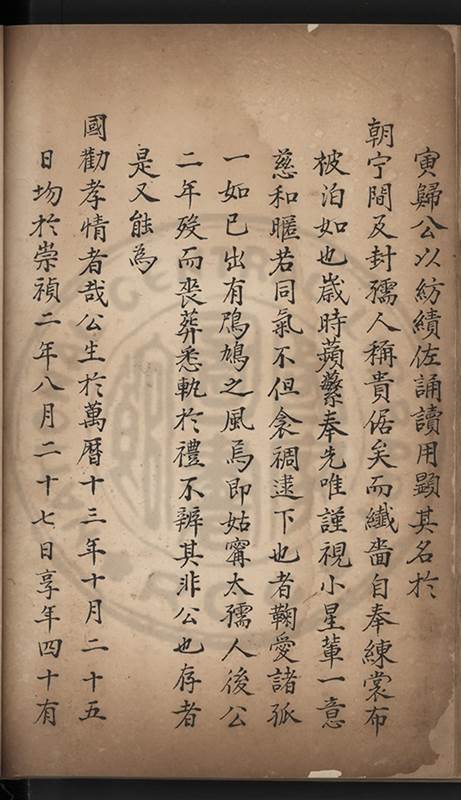 寅歸公以紡績佐誦讀用顯其名於
朝宁間及封孺人稱貴倨矣而纖嗇自奉練裳布
被泊如也歲時蘋蘩奉先唯謹視小星輩一意
慈和暱若同氣不但衾裯逮下也者鞠愛諸孤
一如已出有鳲鳩之風焉即姑甯太孺人後公
二年歿而喪葬悉軌於禮不辨其非公也存者
是又能為
國勸孝情者哉公生於萬曆十三年十月二十五
日均於崇禎二年八月二十七日享年四十有